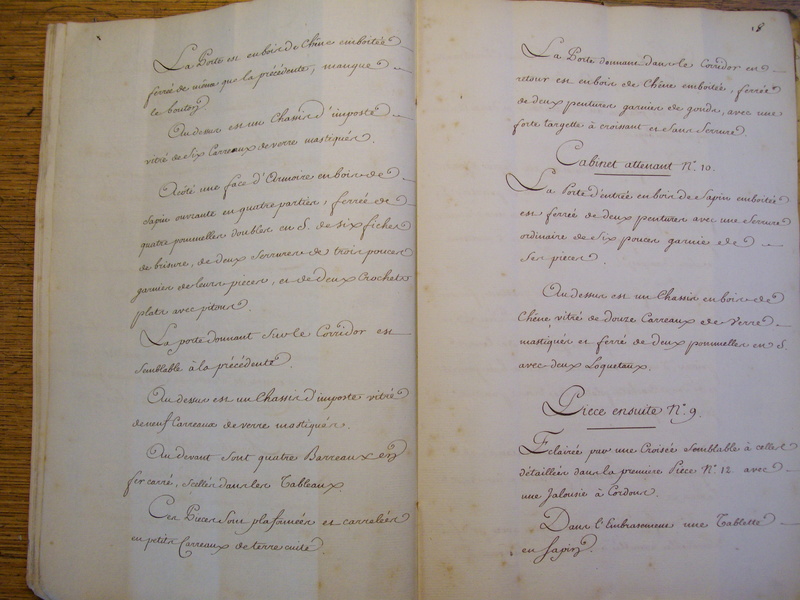 La Porte est en bois de Chêne emboitée
ferrée de même que la précédente, manque
le bouton.
Au dessus est un Chassis d'imposte
vitré de Six Carreaux de verre mastiqués.
A côté une face d'Armoire en bois de
Sapin ouvrante en quatre parties, ferrée de
quatre pommelles doubles en S. de six fiches
de brisure, de deux Serrures de trois pouces
garnies de leurs pieces, et de deux Crochets
plats avec pitons.
La porte donnant Sur le Corridor est
Semblable à la précédente.
Au dessus est un Chassis d'imposte vitré
de neuf Carreaux de verre mastiqués.
Au devant sont quatre Barreaux en
fer carré, Scellés dans les Tableaux.
Ces Pieces Sont plafonnées et carrelées
en petits Carreaux de terre cuite.
18
La Porte donnant dans le Corridor en
retour est en bois de Chêne emboitée, ferrée
de deux pentures garnies de gonds, avec une
forte targette à croissant et Sans Serrure.
Cabinet attenant N°. 10.
La Porte d'entrée en bois de Sapin emboitée
est ferrée de deux pentures avec une Serrure
ordinaire de Six pouces garnie de
Ses pieces.
Au dessus est un Chassis en bois de
Chêne vitré de douze Carreaux de Verre
mastiqués et ferré de deux pommelles en S.
avec deux Loqueteaux.
Piece ensuite N°. 9.
Eclairée par une Croisée Semblable à celles
détaillées dans la premiere Piece N°. 12 avec
une Jalousie à Cordons.
Dans l'Embrasement une Tablette
en Sapin.